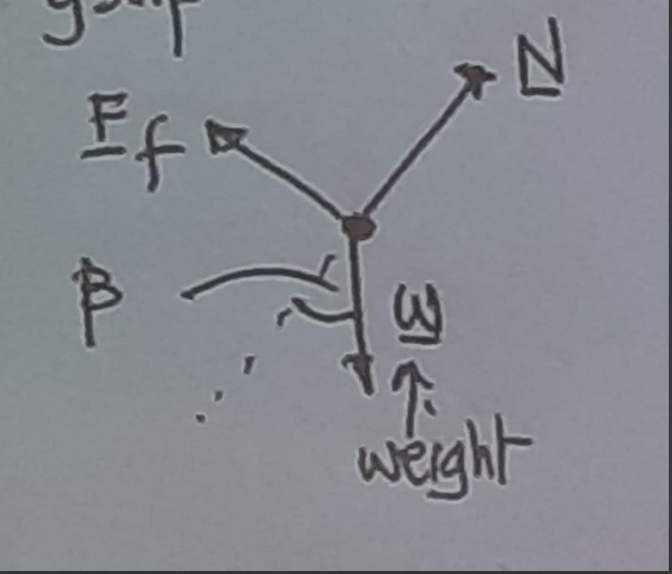 N
F f
β
W
weight